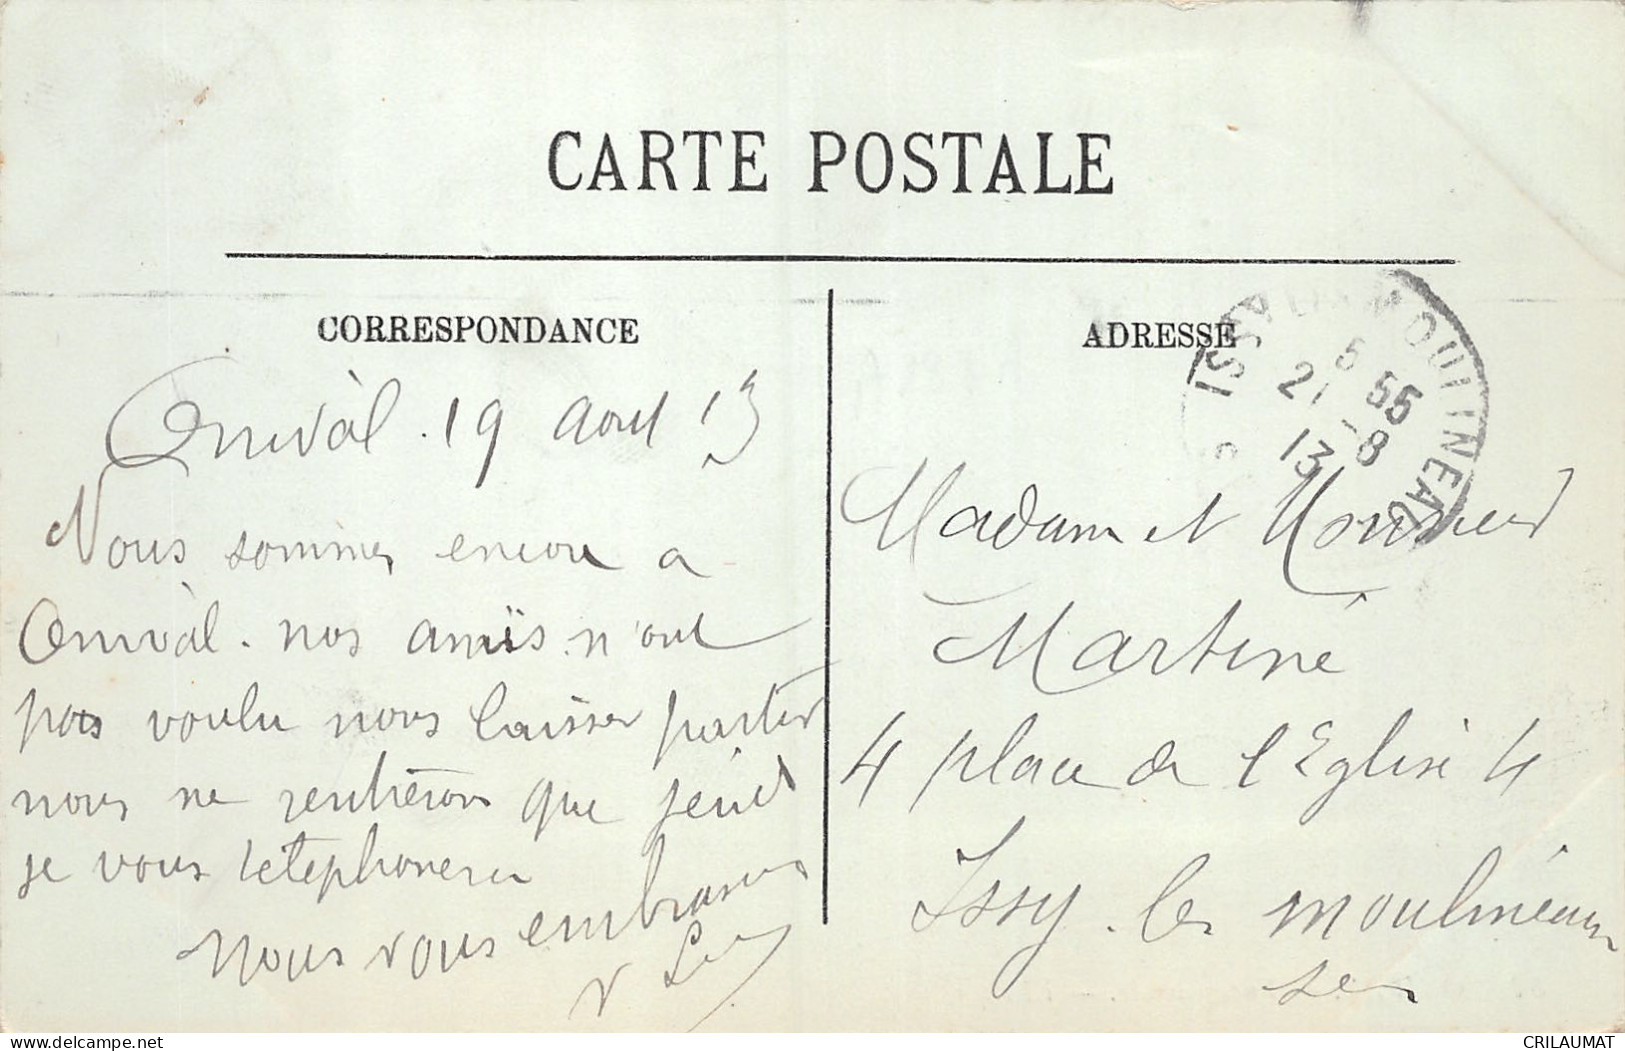 CARTE POSTALE
CORRESPONDANCE
Onival. 19 Aout 13
Nous sommes encore a
Onival. nos amis n'ont
pas voulu nous laisser partir
nous ne rentrerons que jeudi
je vous telephonerai
nous vous embrassons
ADRESSE
ISSY LES MOULINEAUX
5 55
21-8
13
Madame et Monsieur
Martiné
4 place de l'Eglise 4
Issy. les moulineaux
Seine
delcampe.net
CRILAUMAT